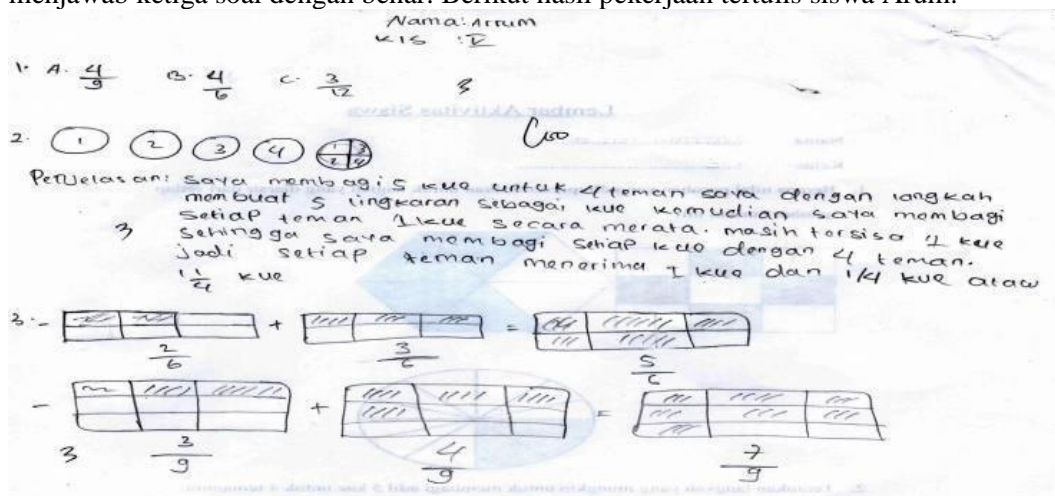 menjawab ketiga soal dengan benar. Berikut hasil pekerjaan tertulis siswa Arum.
Nama: Arrum
Kls : V
1. A. 4/9 B. 4/6 C. 3/12 3
Lembar Aktivitas Siswa
2. 1 2 3 4 1 3 2 4
100
Nama
Kelas
Penjelasan: saya membagi 5 kue untuk 4 teman saya dengan langkah
membuat 5 lingkaran sebagai kue kemudian saya membagi
3 setiap teman 1 kue secara merata. masih tersisa 1 kue
sehingga saya membagi setiap kue dengan 4 teman.
jadi setiap teman menerima 1 kue dan 1/4 kue atau
1 1/4 kue
3. - + =
2/6 3/6 5/6
- + =
3 3/9 4/9 7/9